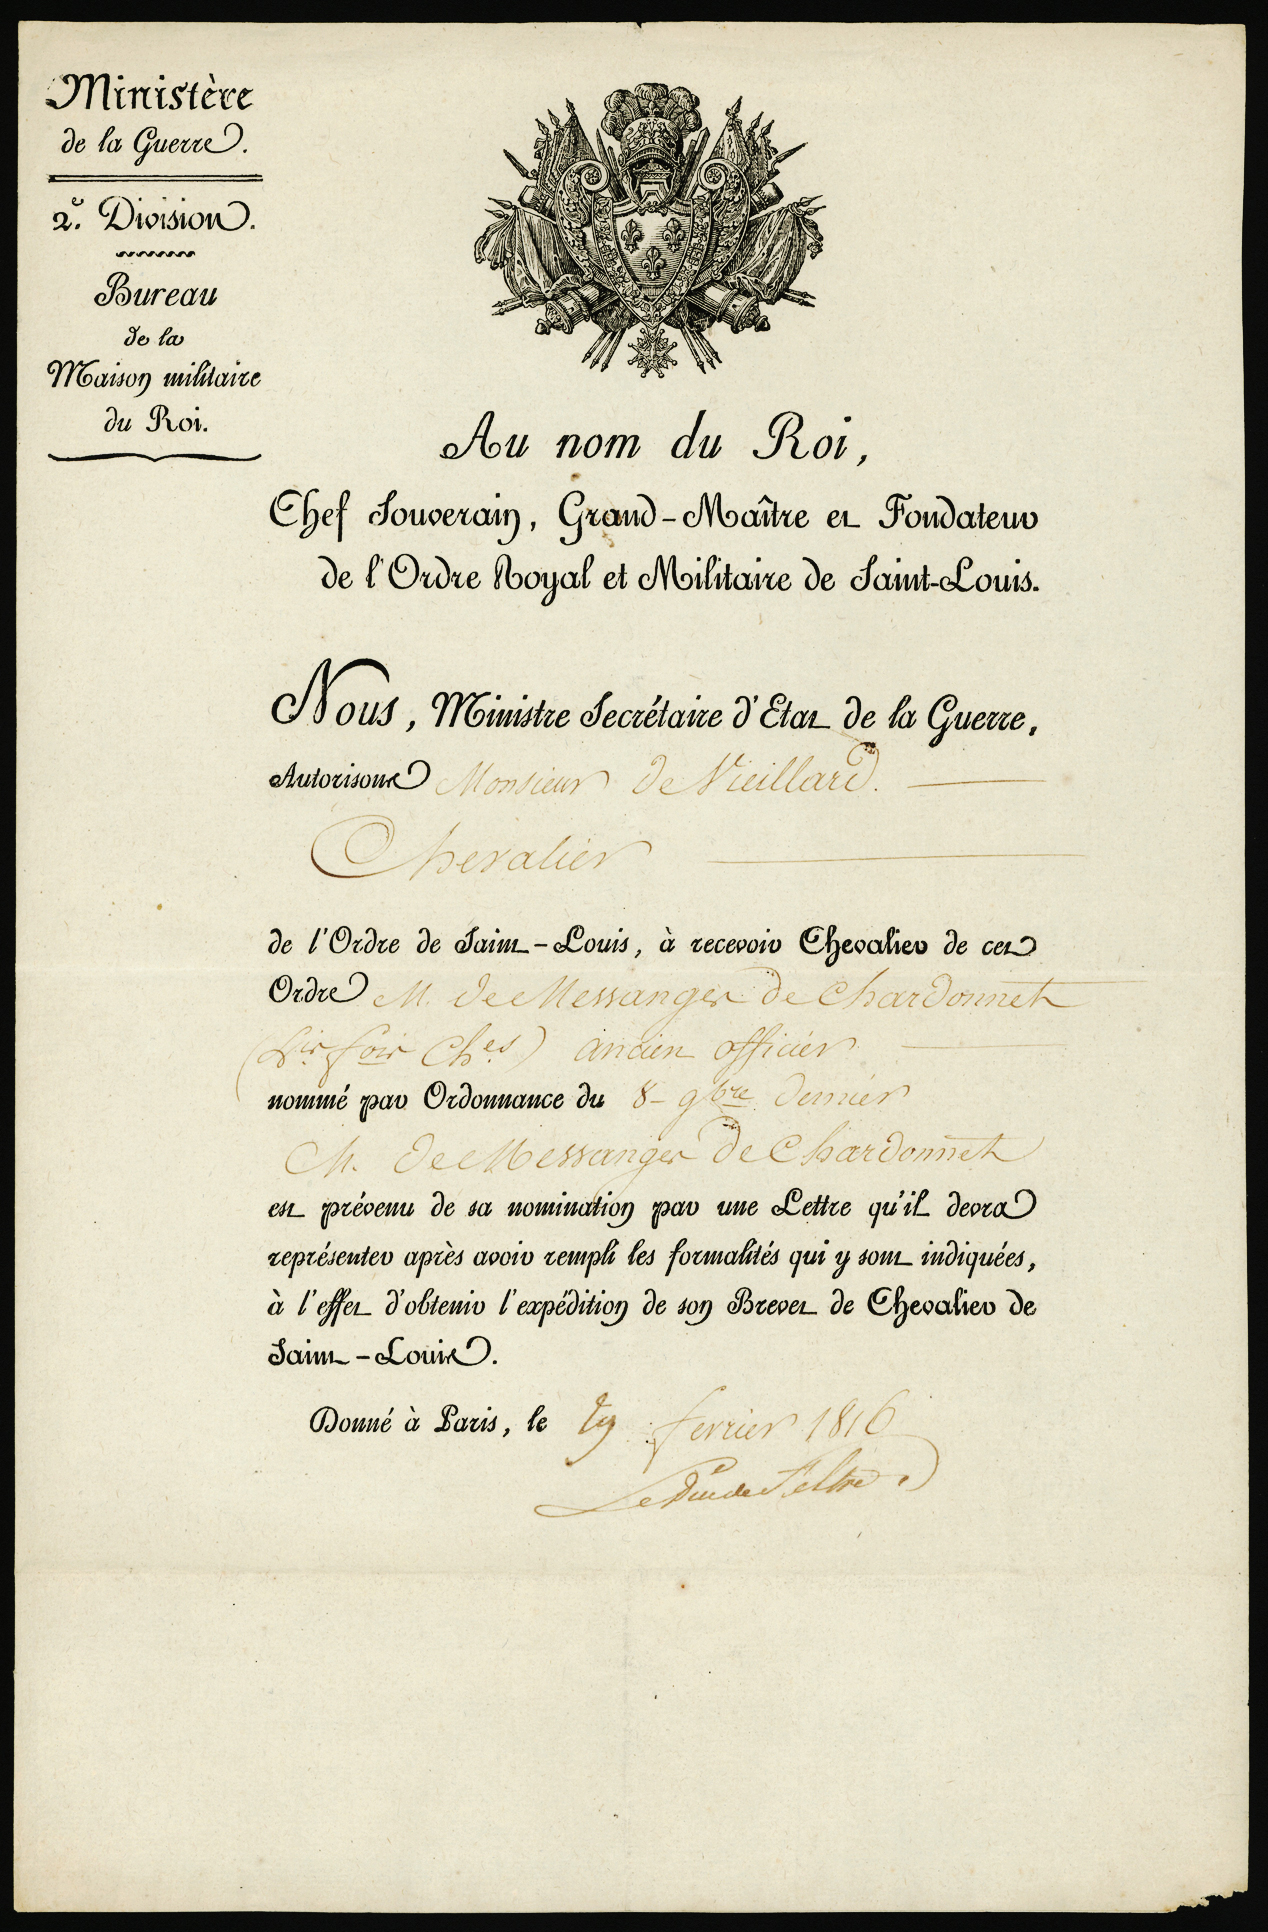 Ministère
de la Guerre.
2e. Division.
Bureau
de la
Maison militaire
du Roi.
Au nom du Roi,
Chef Souverain, Grand-Maître et Fondateur
de l'Ordre Royal et Militaire de Saint-Louis.
Nous, Ministre Secrétaire d'Etat de la Guerre,
Autorisons Monsieur de Vieillard.
Chevalier
de l'Ordre de Saint-Louis, à recevoir Chevalier de cet
Ordre M. de Messanger de Chardonnet
Ch.es) ancien officier
nommé par Ordonnance du 8 9bre dernier
M. de Messanger de Chardonnet
est prévenu de sa nomination par une Lettre qu'il devra
représenter après avoir rempli les formalités qui y sont indiquées,
à l'effet d'obtenir l'expédition de son Brevet de Chevalier de
Saint-Louis.
Donné à Paris, le fevrier 1816
Le Duc de Feltre